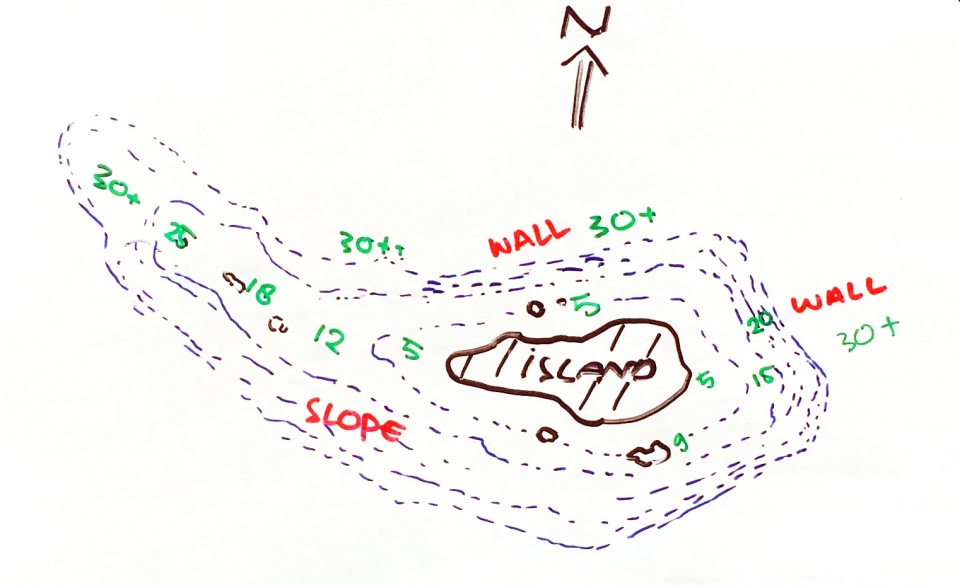 N
30+
25
WALL 30+
30++
18
5
WALL
20
30+
12
5
ISLAND
5
15
SLOPE
9